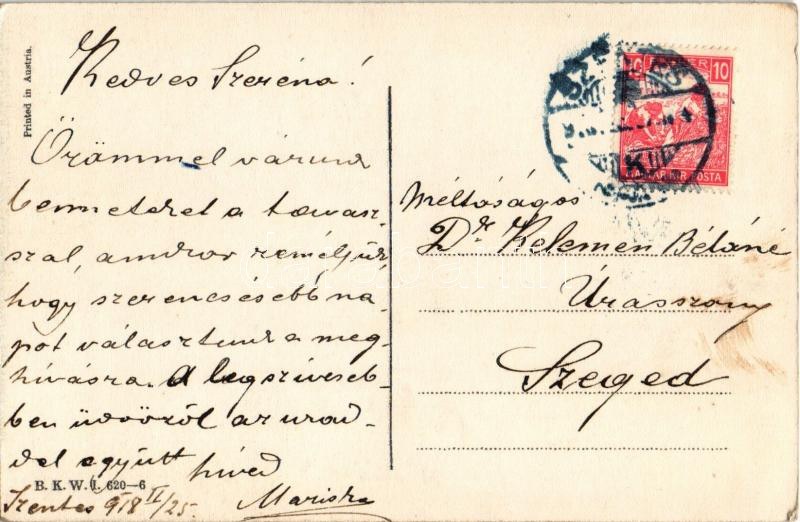 Printed in Austria.
Kedves Szeréna!
Örömmel várunk
benneteket a tavasz-
szal, amikor reméljük
hogy szerencsésebb na-
pot választunk a meg-
hívásra. A legszíveseb-
ben üdvözöl az urad-
dal együtt híved
Mariska
B. K. W. I. 620—6
Szentes 918 II/25.
10 FILLÉR 10
MAGYAR KIR. POSTA
Méltóságos
Dr Kelemen Béláné
Úrasszony
Szeged